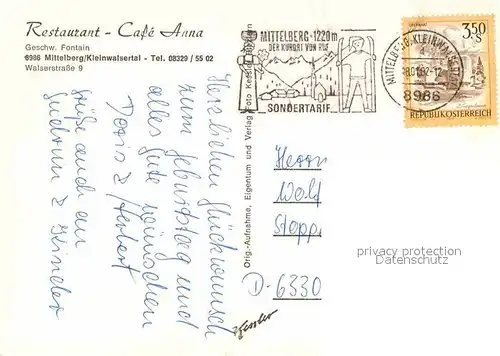 Restaurant - Café Anna
Geschw. Fontain
6986 Mittelberg/Kleinwalsertal - Tel. 08329 / 55 02
Walserstraße 9
Herzlichen Glückwunsch
zum Geburtstag und
alles Gute wünschen
Doris & Herbert
Grüße auch an
Gudrun & Kinder
Orig.-Aufnahme, Eigentum und Verlag Foto Kessler
Kessler
MITTELBERG 1220m
DER KURORT VON RUF
SONDERTARIF
MITTELBERG, KLEINWALSERTAL
-12
6986
3.50
S
REPUBLIK ÖSTERREICH
Herrn
Wolf
Stepp
D-6330
privacy protection
Datenschutz